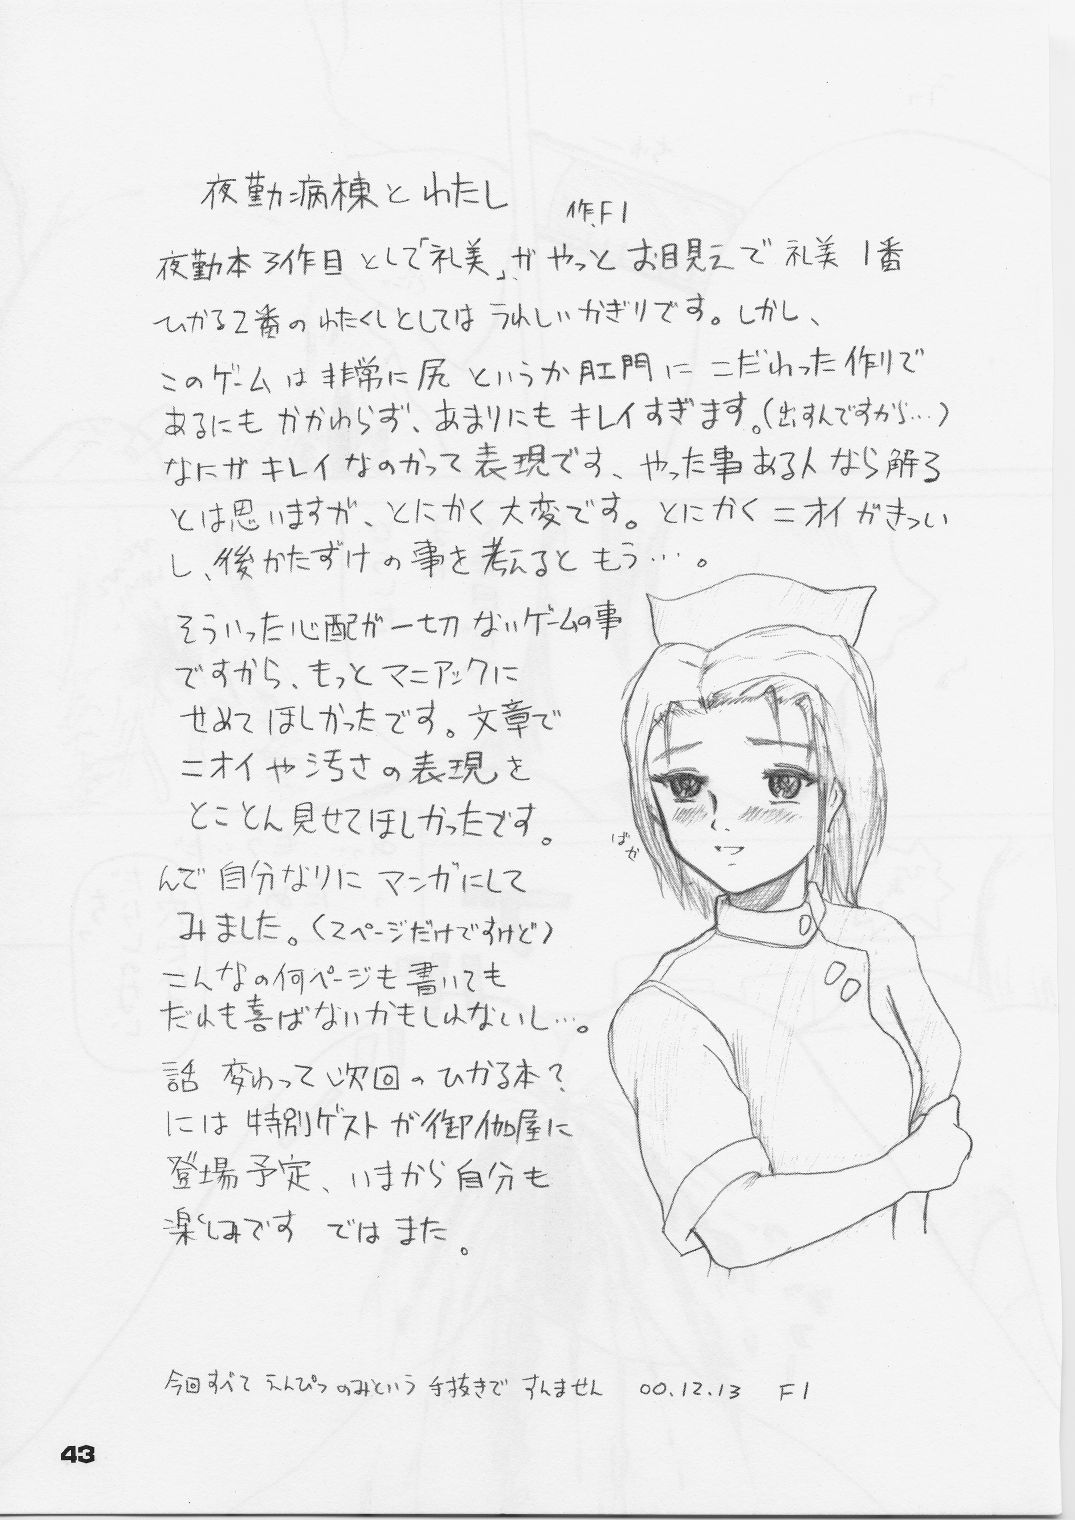 夜勤病棟とわたし
作.F1
夜勤本3作目として「礼美」がやっとお目見えで礼美1番
ひかる2番のわたくしとしてはうれしいかぎりです。しかし、
このゲームは非常に尻というか肛門にこだわった作りで
あるにもかかわらず、あまりにもキレイすぎます。(出すんですから…)
なにがキレイなのかって表現です、やった事ある人なら解る
とは思いますが、とにかく大変です。とにかくニオイがきつい
し、後かたずけの事を考えるともう…。
そういった心配が一切ないゲームの事
ですから、もっとマニアックに
せめてほしかったです。文章で
ニオイや汚さの表現を
とことん見せてほしかったです。
ばか
んで自分なりにマンガにして
みました。(2ページだけですけど)
こんなの何ページも書いても
だれも喜ばないかもしれないし…。
話変わって次回のひかる本?
には特別ゲストが御伽屋に
登場予定、いまから自分も
楽しみです ではまた。
今回すべてえんぴつのみという手抜きですんません 00.12.13 F1
43